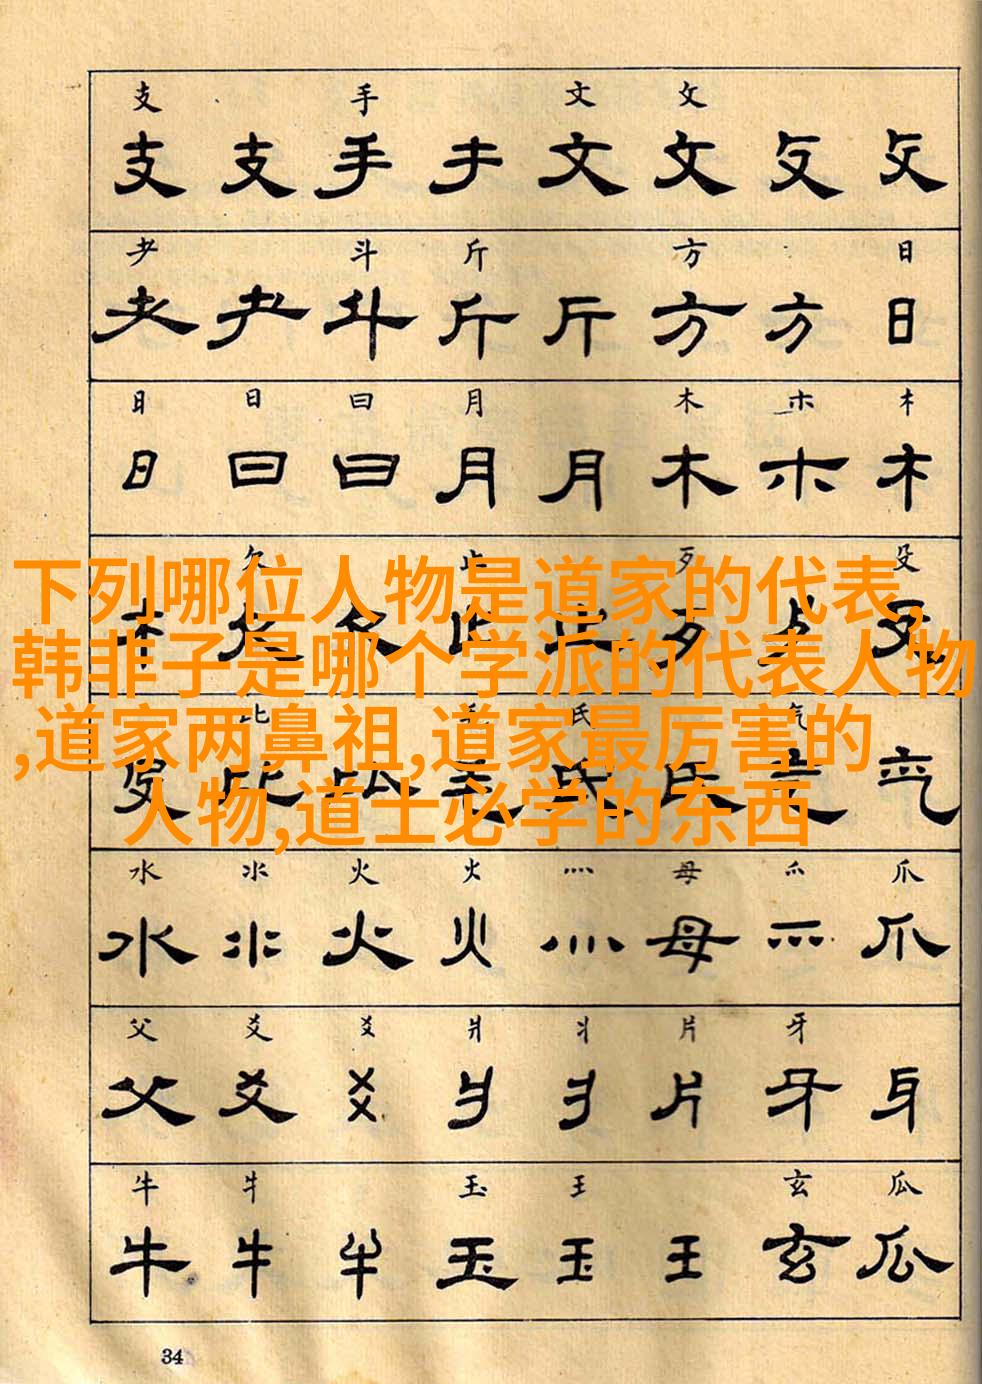 支 手 文 攵
支 支 手 文 攵
耂 斗 斤 方 日
斗 斤 斤 方 方 日
日 日 曰 月 木 朩 木
日 曰 曰 月 月 木 朩 木
欠 止 歹 殳
下列哪位人物是道家的代表,
韩非子是哪个学派的代表人物
,道家两鼻祖,道家最厉害的
人物,道士必学的东西
比 氏 气
水 氺 火 火 灬 母 爪
水 氺 火 火 灬 母 爪
父 爻 爻 爿 丬 片 牙
父 爻 爿 片 牙
牛 牜 玉 王 玄 瓜
牛 牛 玉 玉 王 玄 瓜
34